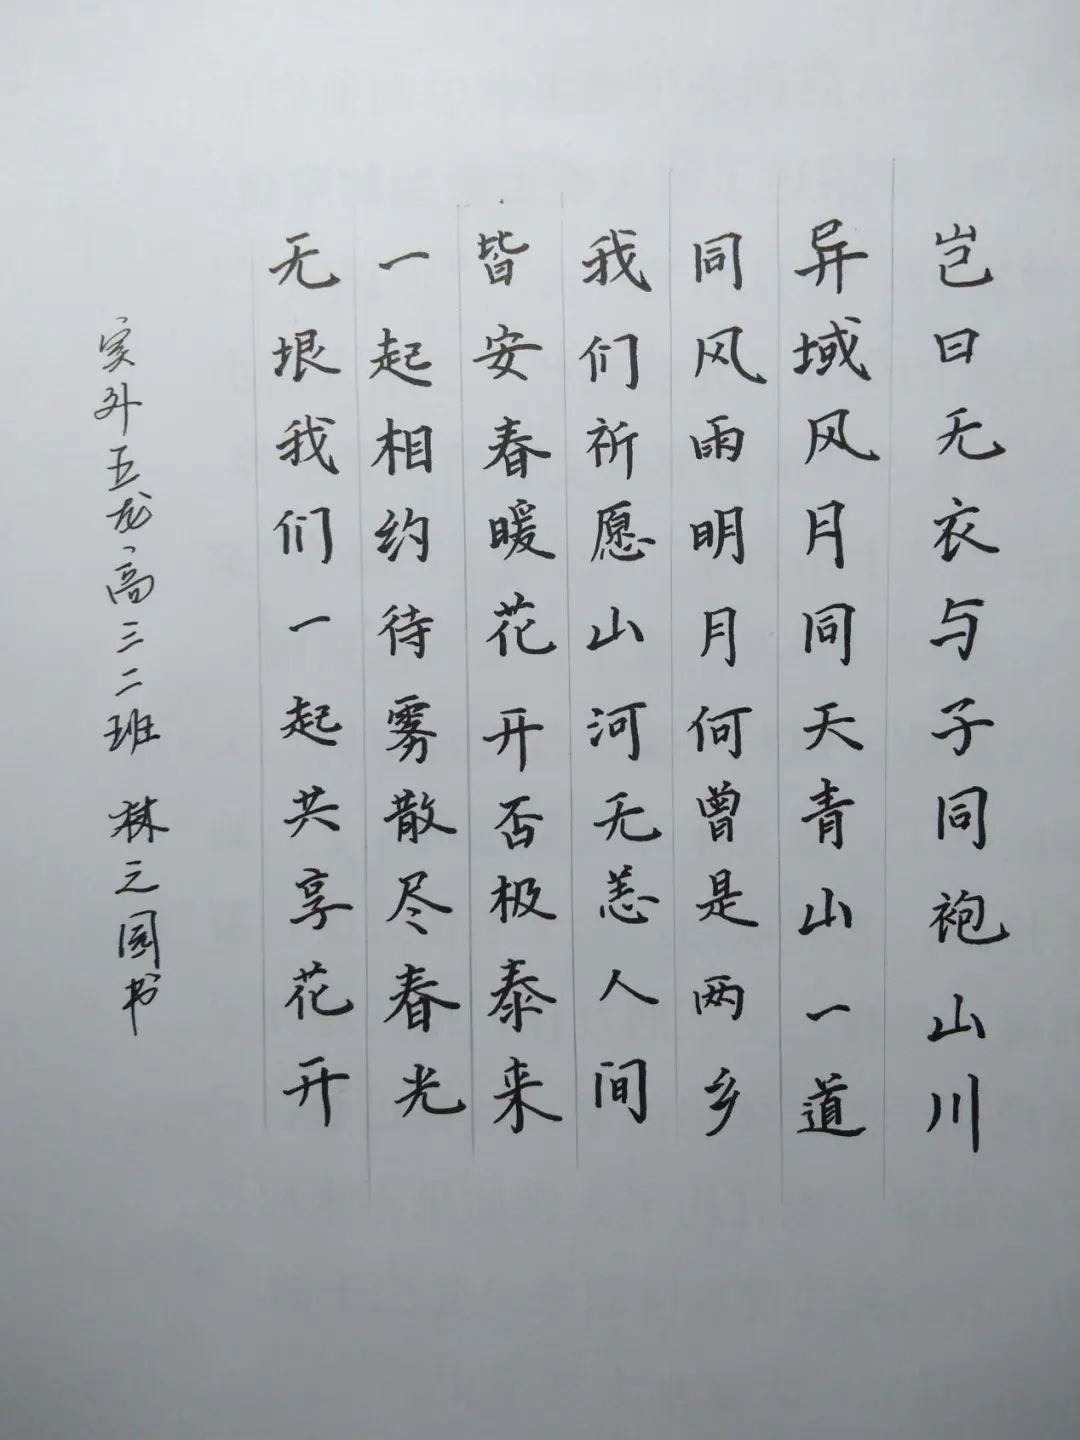 岂曰无衣与子同袍山川
异域风月同天青山一道
同风雨明月何曾是两乡
我们祈愿山河无恙人间
皆安春暖花开否极泰来
一起相约待雾散尽春光
无垠我们一起共享花开
实外五龙高三二班 林之园书